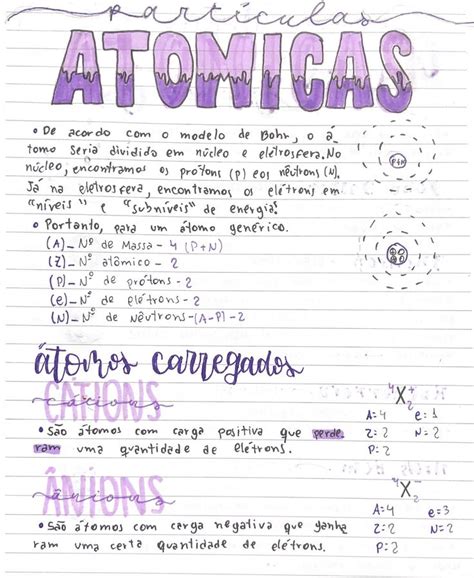 partículas
ATOMICAS
• De acordo com o modelo de Bohr, o á
tomo seria dividido em núcleo e eletrosfera. No
núcleo, encontramos os prótons (P) e os nêutrons (N).
Já na eletrosfera, encontramos os elétrons em
"níveis" e "subníveis" de energia.
P+N
• Portanto, para um átomo genérico.
(A)_ Nº de Massa - 4 (P+N)
(Z)_ Nº atômico - 2
(P)_ Nº de prótons - 2
(e)_ Nº de elétrons - 2
(N)_ Nº de Nêutrons-(A-P)-2
átomos carregados
CÁTIONS
cátions
• São átomos com carga positiva que perde
ram uma quantidade de elétrons.
⁴X₂⁺
A=4 e=1
Z=2 N=2
P=2
ÂNIONS
ânions
• São átomos com carga negativa que ganha
ram uma certa quantidade de elétrons.
⁴X₂⁻
A=4 e=3
Z=2 N=2
P=2